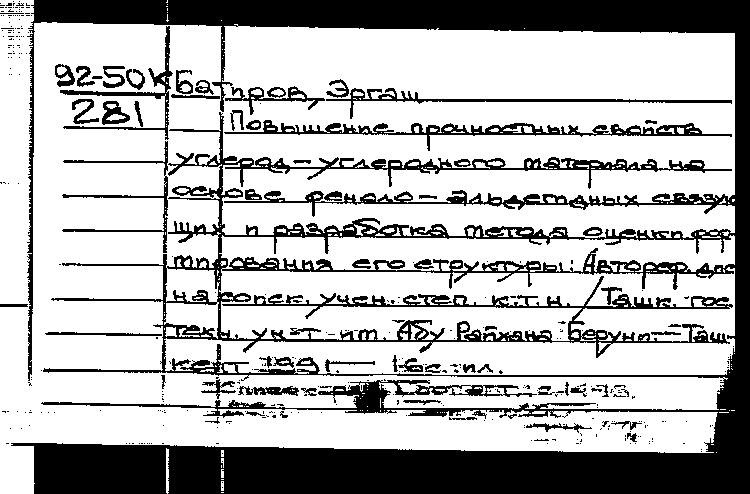 92-50К
281
Батиров, Эргаш
Повышение прочностных свойств
углерод-углеродного материала на
основе феноло-альдегидных связую
щих и разработка метода оценки фор-
мирования его структуры: Автореф. дис
на соиск. учен. степ. к.т.н. / Ташк. гос
техн. ун-т им. Абу Райхана Беруни.- Таш-
кент 1991.- 16с.: ил.
с. 14-15.